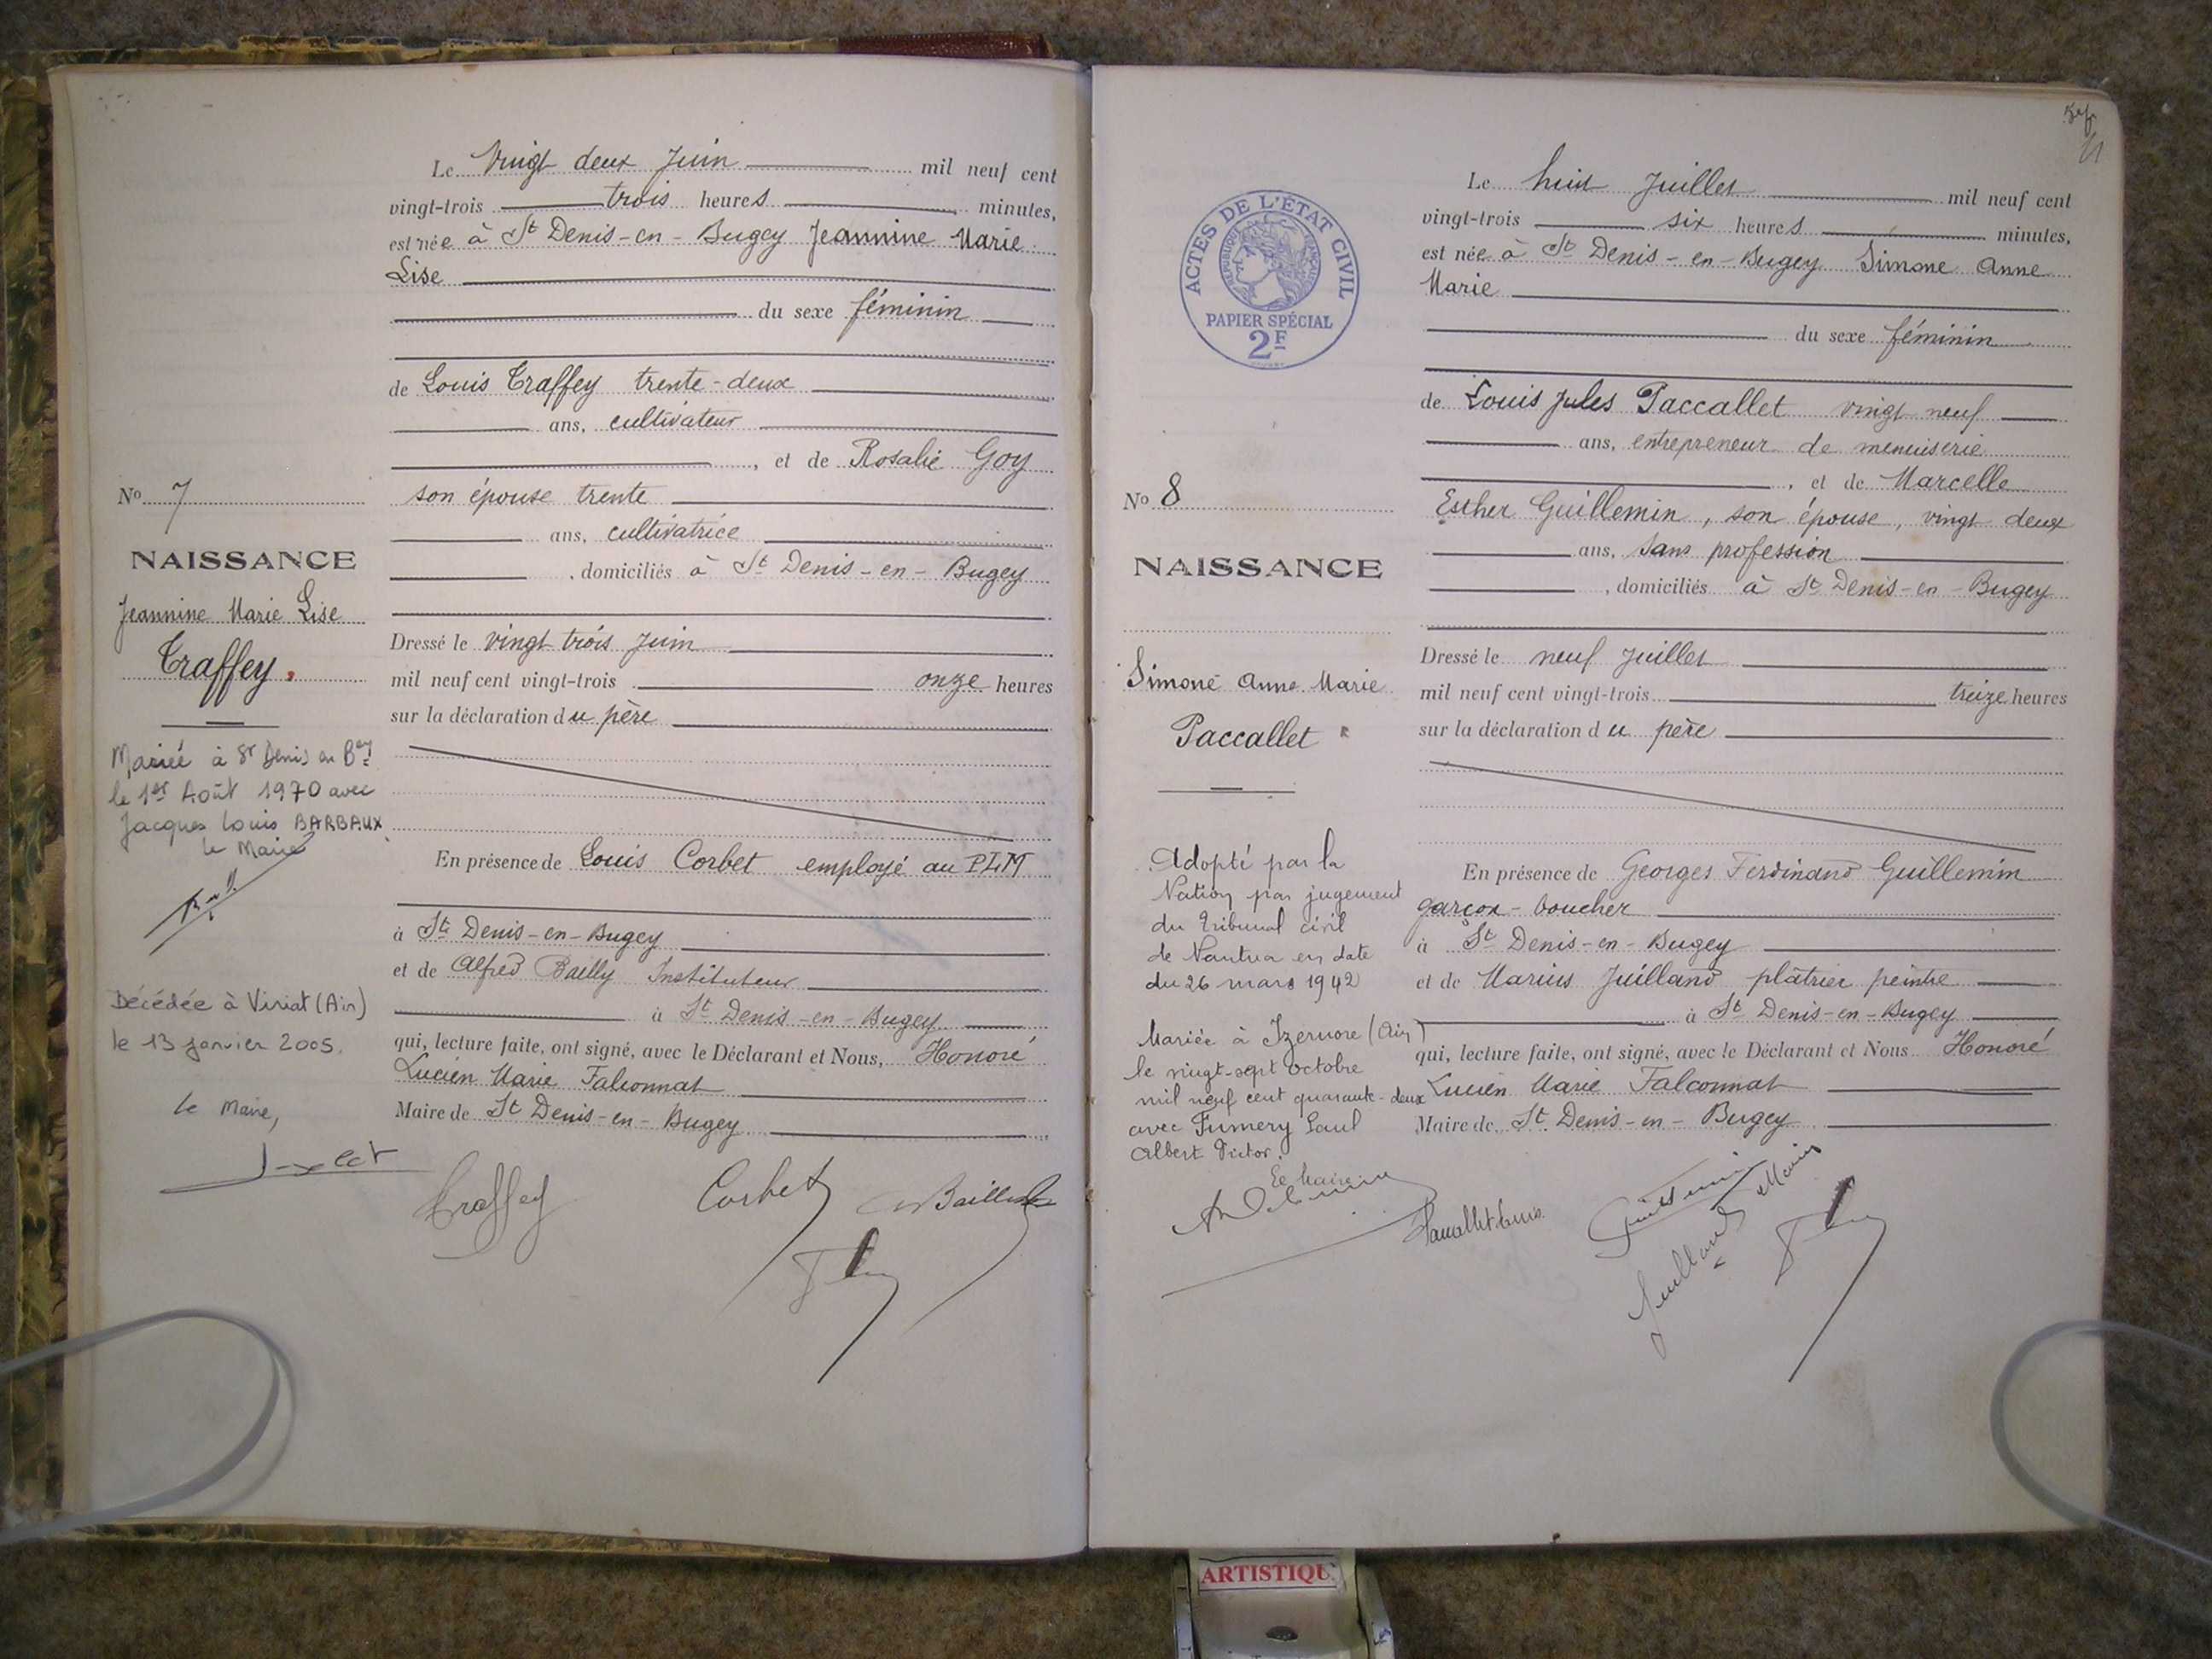 Le Vingt deux Juin mil neuf cent
vingt-trois trois heures minutes,
est née à St Denis-en-Bugey Jeannine Marie
Lise
du sexe féminin
de Louis Traffey trente-deux
ans, cultivateur
, et de Rosalie Goy
son épouse trente
ans, cultivatrice
, domiciliés à St Denis-en-Bugey
Dressé le vingt trois Juin
mil neuf cent vingt-trois onze heures
sur la déclaration du père
En présence de Louis Corbet employé au PLM
à St Denis-en-Bugey
et de Alfred Bailly Instituteur
à St Denis-en-Bugey
qui, lecture faite, ont signé, avec le Déclarant et Nous, Honoré
Lucien Marie Falconnat
Maire de St Denis-en-Bugey
Traffey Corbet Bailly
No 7
NAISSANCE
Jeannine Marie Lise
Traffey
Mariée à St Denis en Bey
le 1er Août 1970 avec
Jacques Louis BARBAUX
le Maire
Décédée à Viriat (Ain)
le 13 janvier 2005.
le Maire,
ACTES DE L'ÉTAT CIVIL
RÉPUBLIQUE FRANÇAISE
PAPIER SPÉCIAL
2F
No 8
NAISSANCE
Simone Anne Marie
Paccallet
Adopté par la
Nation par jugement
du Tribunal civil
de Nantua en date
du 26 mars 1942
Mariée à Izernore (Ain)
le vingt-sept octobre
mil neuf cent quarante-deux
avec Fumery Paul
Albert Victor.
Le Maire
Le huit Juillet mil neuf cent
vingt-trois six heures minutes,
est née à St Denis-en-Bugey Simone Anne
Marie
du sexe féminin
de Louis Jules Paccallet vingt neuf
ans, entrepreneur de menuiserie
, et de Marcelle
Esther Guillemin, son épouse, vingt deux
ans, sans profession
, domiciliés à St Denis-en-Bugey
Dressé le neuf Juillet
mil neuf cent vingt-trois treize heures
sur la déclaration du père
En présence de Georges Ferdinand Guillemin
garçon-boucher
à St Denis-en-Bugey
et de Marius Juilland plâtrier peintre
à St Denis-en-Bugey
qui, lecture faite, ont signé, avec le Déclarant et Nous Honoré
Lucien Marie Falconnat
Maire de St Denis-en-Bugey
Paccallet Louis Guillemin
Juilland Marius
ARTISTIQU